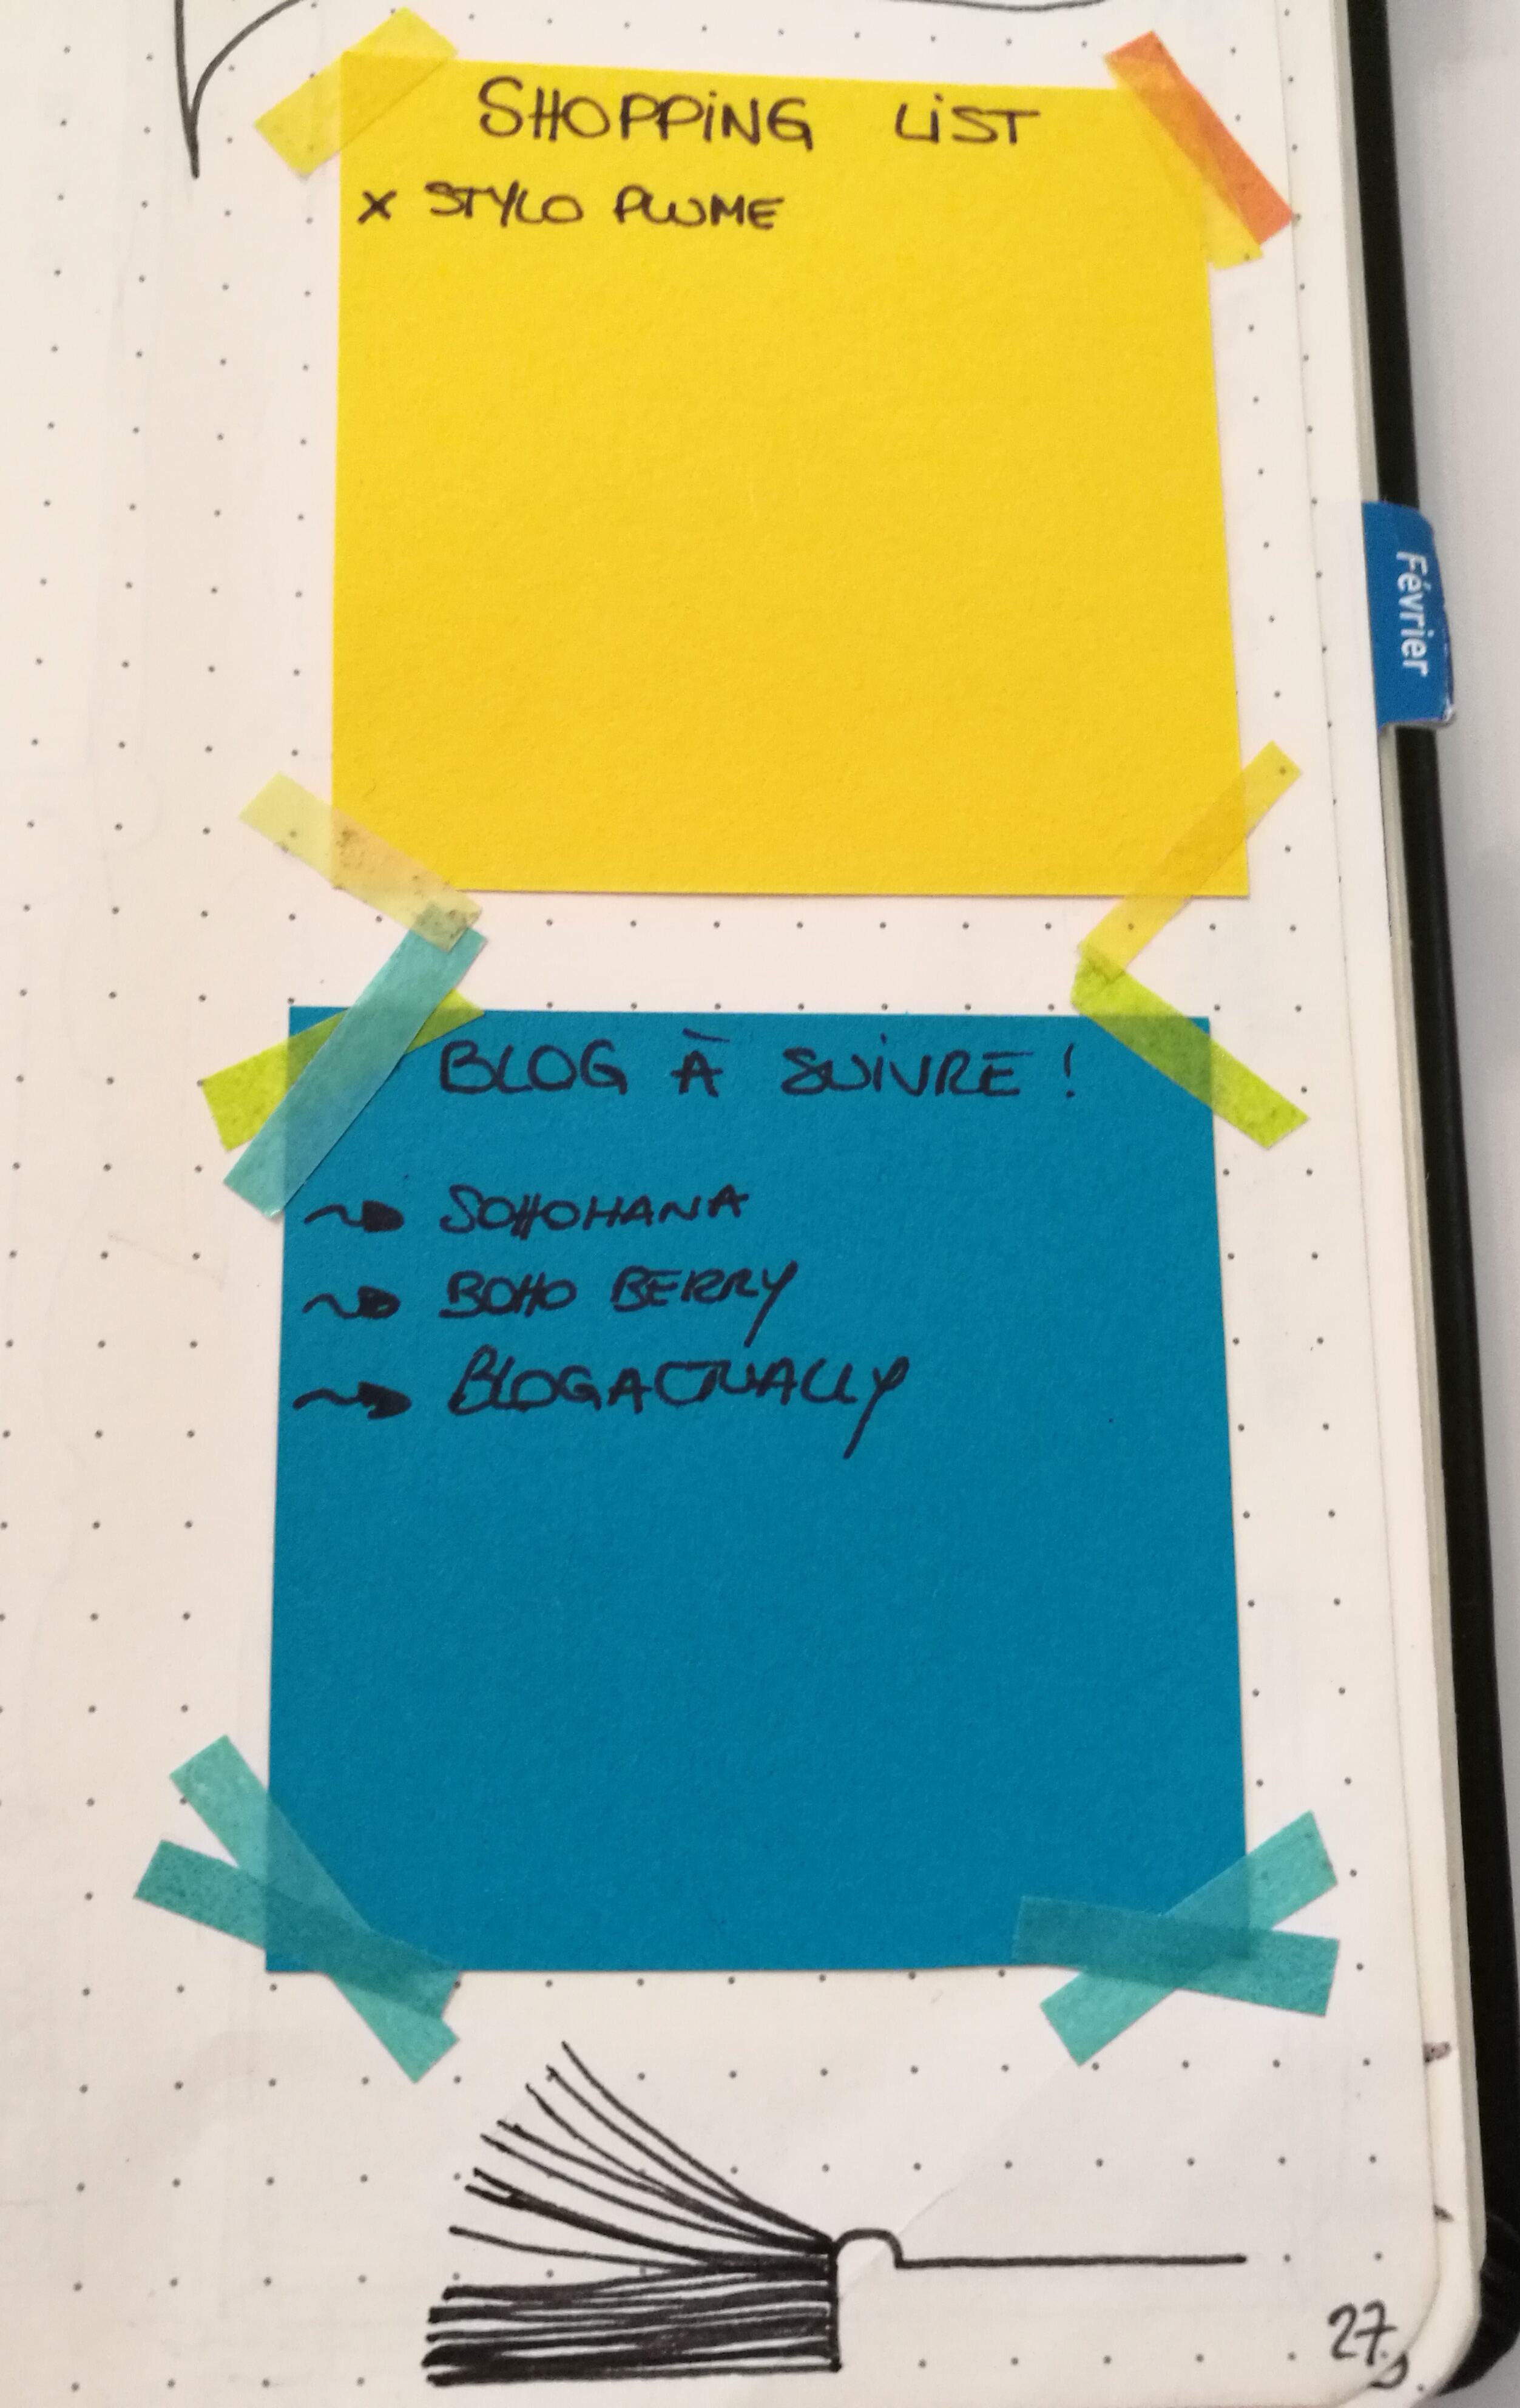 SHOPPiNG LiST
x STYLO PLUME
Février
BLOG À SUiVRE !
SOHOHANA
BOHO BERRY
BLOGACTUALLY
27